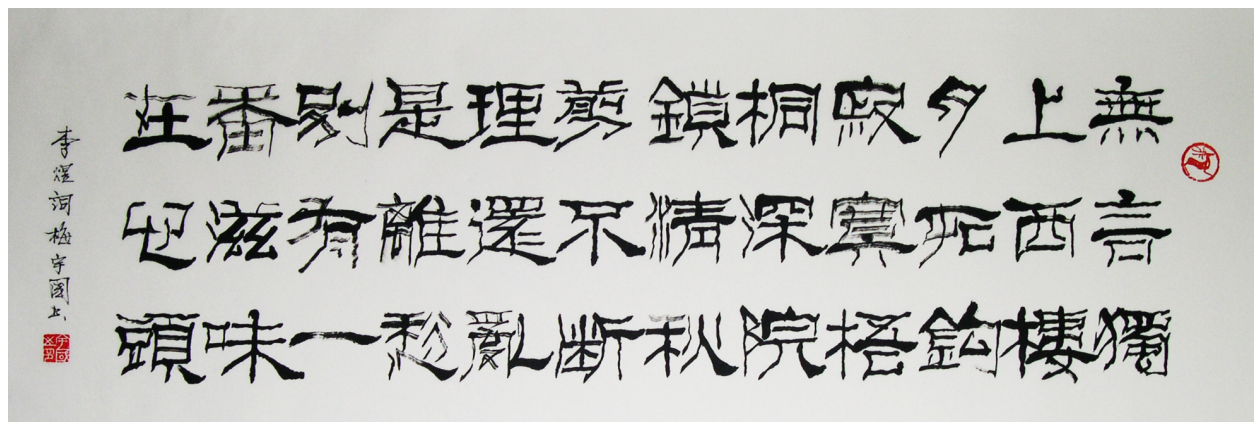 無言獨
上西樓
月如鈎
寂寞梧
桐深院
鎖清秋
剪不断
理還亂
是離愁
別有一
番滋味
在心頭
李煜詞梅宇國